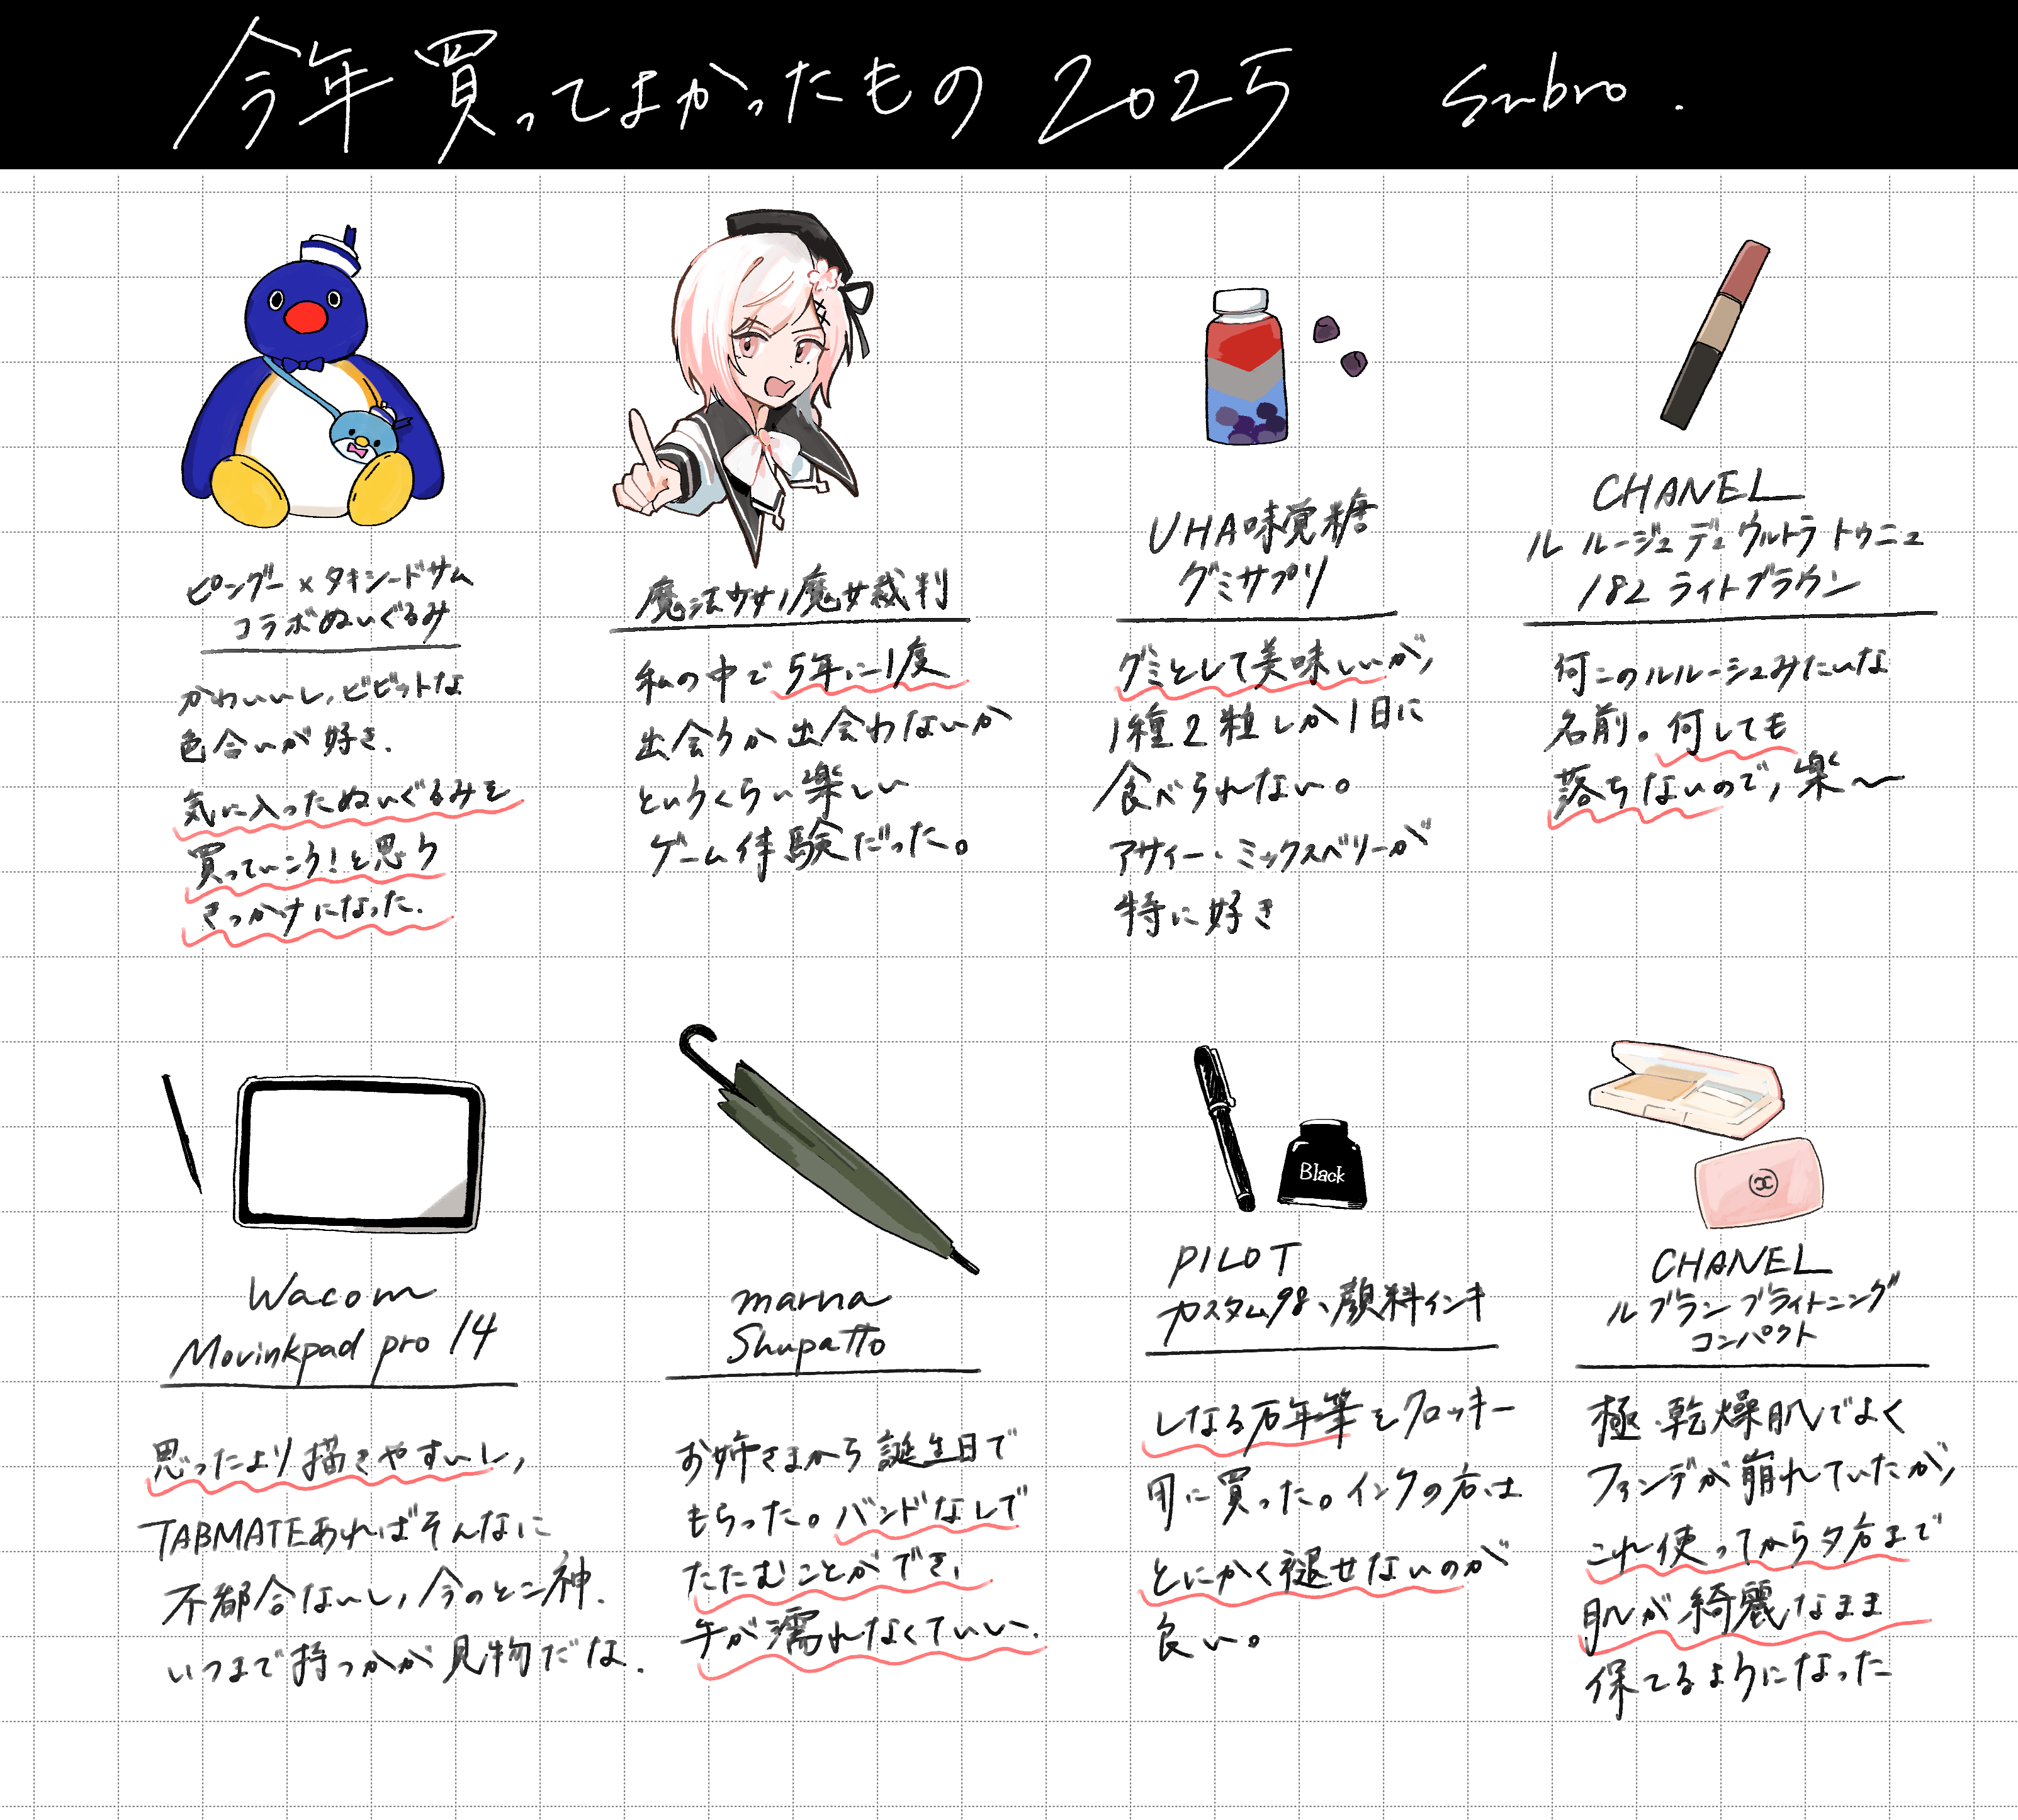 今年買ってよかったもの 2025 Subro.
ピングー×タキシードサム
コラボぬいぐるみ
かわいいし、ビビットな
色合いが好き.
気に入ったぬいぐるみを
買っていこう!と思う
きっかけになった.
魔法少女ノ魔女裁判
私の中で5年に1度
出会うか出会わないか
というくらい楽しい
ゲーム体験だった。
UHA味覚糖
グミサプリ
グミとして美味しいが、
1種2粒しか1日に
食べられない。
アサイー・ミックスベリーが
特に好き
CHANEL
ル ルージュ デュ ウルトラ トゥニュ
182 ライトブラウン
何このルルーシュみたいな
名前。何しても
落ちないので、楽〜
Wacom
Movinkpad pro 14
思ったより描きやすいし、
TABMATEあればそんなに
不都合ないし、今のとこ神.
いつまで持つかが見物だな.
marna
Shupatto
お姉さまから誕生日で
もらった。バンドなしで
たたむことができ、
手が濡れなくていい.
Black
PILOT
カスタム98、顔料インキ
しなる万年筆をクロッキー
用に買った。インクの方は
とにかく褪せないのが
良い。
CHANEL
ル ブラン ブライトニング
コンパクト
極・乾燥肌でよく
ファンデが崩れていたが、
これ使ってから夕方まで
肌が綺麗なまま
保てるようになった